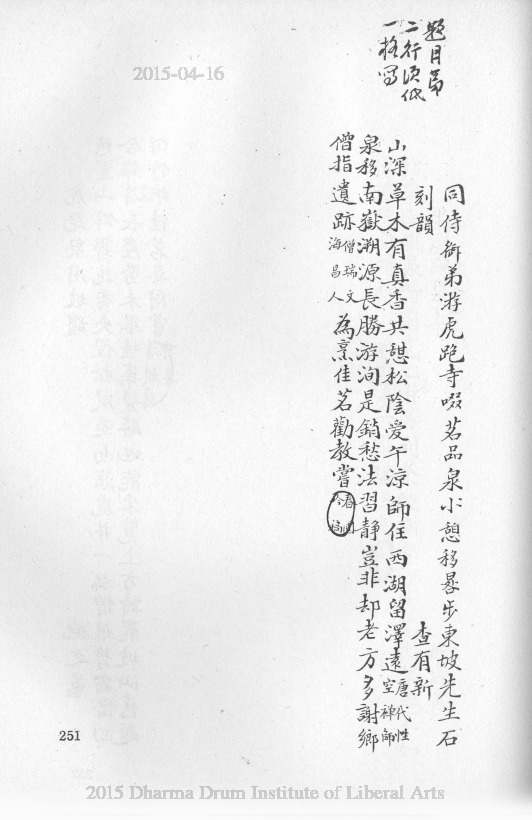 2015-04-16
題目第
二行須低
一格寫
同侍御弟游虎跑寺啜茗品泉小憩移晷步東坡先生石
刻韻
查有新
山深草木有真香共憩松陰愛午涼師住西湖留澤遠唐代性空禪師
泉移南嶽溯源長勝游洵是銷愁法習静豈非却老方多謝鄉
僧指遺跡僧瑞文海昌人為烹佳茗勸教嘗春園吟稿
251
2015 Dharma Drum Institute of Liberal Arts